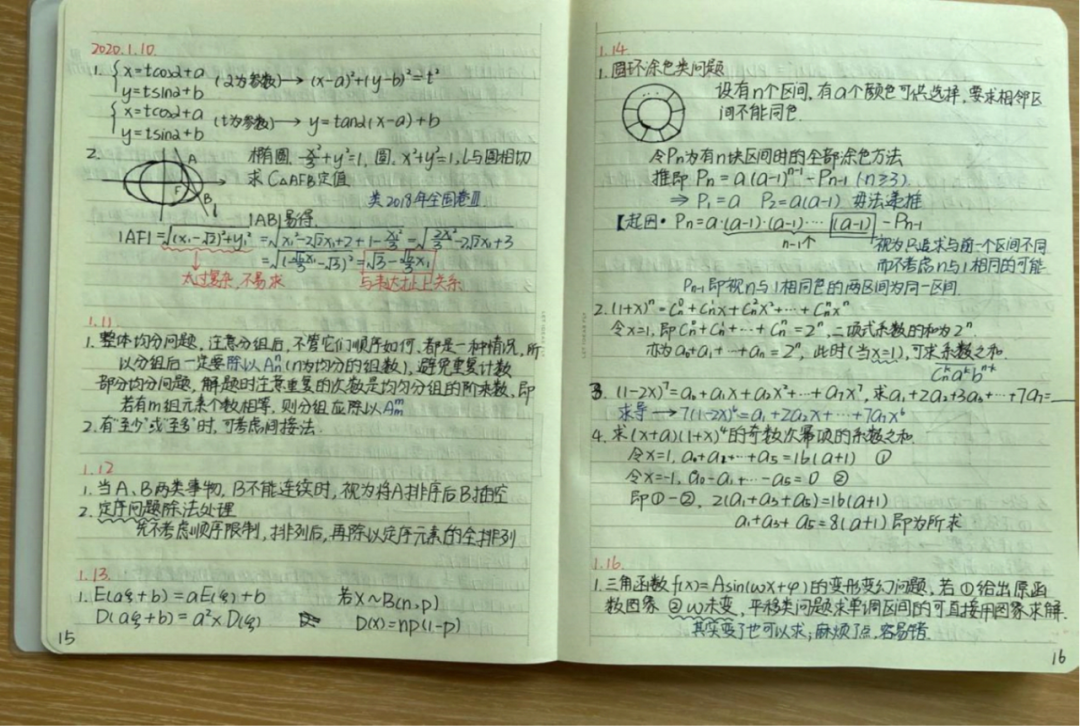 2020.1.10
1. { x=tcosα+a
y=tsinα+b (α为参数)→ (x-a)²+(y-b)²=t²
{ x=tcosα+a
y=tsinα+b (t为参数)→ y=tanα(x-a)+b
2. 椭圆 x²/3+y²=1, 圆 x²+y²=1, l与圆相切
A
F
B
l
求 C△AFB定值
类2018年全国卷Ⅲ
|AB|易得
|AF|=√(x₁-√2)²+y₁² =√x₁²-2√2x₁+2+1-x₁²/3 =√2x₁²/3-2√2x₁+3
=√(√2/√3x₁-√3)² =√3-√2/√3x₁
太过复杂,不易求 与表达式上关系
1.11
1. 整体均分问题,注意分组后,不管它们顺序如何,都是一种情况,所
以分组后一定要除以Aₙⁿ(n为均分的组数),避免重复计数
部分均分问题,解题时注意重复的次数是均匀分组的阶乘数,即
若有m组元素个数相等,则分组应除以Aₘᵐ
2. 有“至少”或“至多”时,可考虑间接法.
1.12
1. 当A、B两类事物,B不能连续时,视为将A排序后B插空
2. 定序问题除法处理
先不考虑顺序限制,排列后,再除以定序元素的全排列
1.13
1. E(aξ+b)=aE(ξ)+b 若X~B(n,p)
D(aξ+b)=a²×D(ξ) D(X)=np(1-p)
15
1.14
1. 圆环涂色类问题
设有n个区间,有a个颜色可供选择,要求相邻区
间不能同色.
令Pn为有n块区间时的全部涂色方法
推即 Pn=a(a-1)ⁿ⁻¹-Pn-1 (n≥3)
⇒ P₁=a P₂=a(a-1) 毋法递推
【起因• Pn=a·(a-1)·(a-1)····(a-1)-Pn-1
n-1个 视为只追求与前一个区间不同
而不考虑n与1相同的可能
Pn-1即视n与1相同色的两区间为同一区间.
2. (1+x)ⁿ=Cₙ⁰+Cₙ¹x+Cₙ²x²+···+Cₙⁿxⁿ
令x=1,即Cₙ⁰+Cₙ¹+···+Cₙⁿ=2ⁿ,二项式系数的和为2ⁿ.
亦为a₀+a₁+···+aₙ=2ⁿ,此时(当x=1),可求系数之和.
Cₙᵏaᵏbⁿ⁻ᵏ
3. (1-2x)⁷=a₀+a₁x+a₂x²+···+a₇x⁷,求a₁+2a₂+3a₃+···+7a₇=__
求导→7(1-2x)⁶=a₁+2a₂x+···+7a₇x⁶
4. 求(x+a)(1+x)⁴的奇数次幂项的系数之和.
令x=1, a₀+a₁+···+a₅=16(a+1) ①
令x=-1, a₀-a₁+···-a₅=0 ②
即①-②, 2(a₁+a₃+a₅)=16(a+1)
a₁+a₃+a₅=8(a+1)即为所求
1.16.
1. 三角函数f(x)=Asin(ωx+φ)的变形变幻问题,若①给出原函
数图象 ②ω未变,平移类问题求单调区间的可直接用图象求解.
其实变了也可以求,麻烦了点,容易错.
16